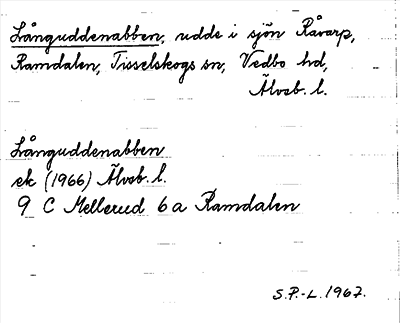 Långuddenabben, udde i sjön Råvarp,
Ramdalen, Tisselskogs sn, Vedbo hd,
Älvsb. l.
Långuddenabben
ek (1966) Älvsb. l.
9 C Mellerud 6a Ramdalen
S.P.-L. 1967.